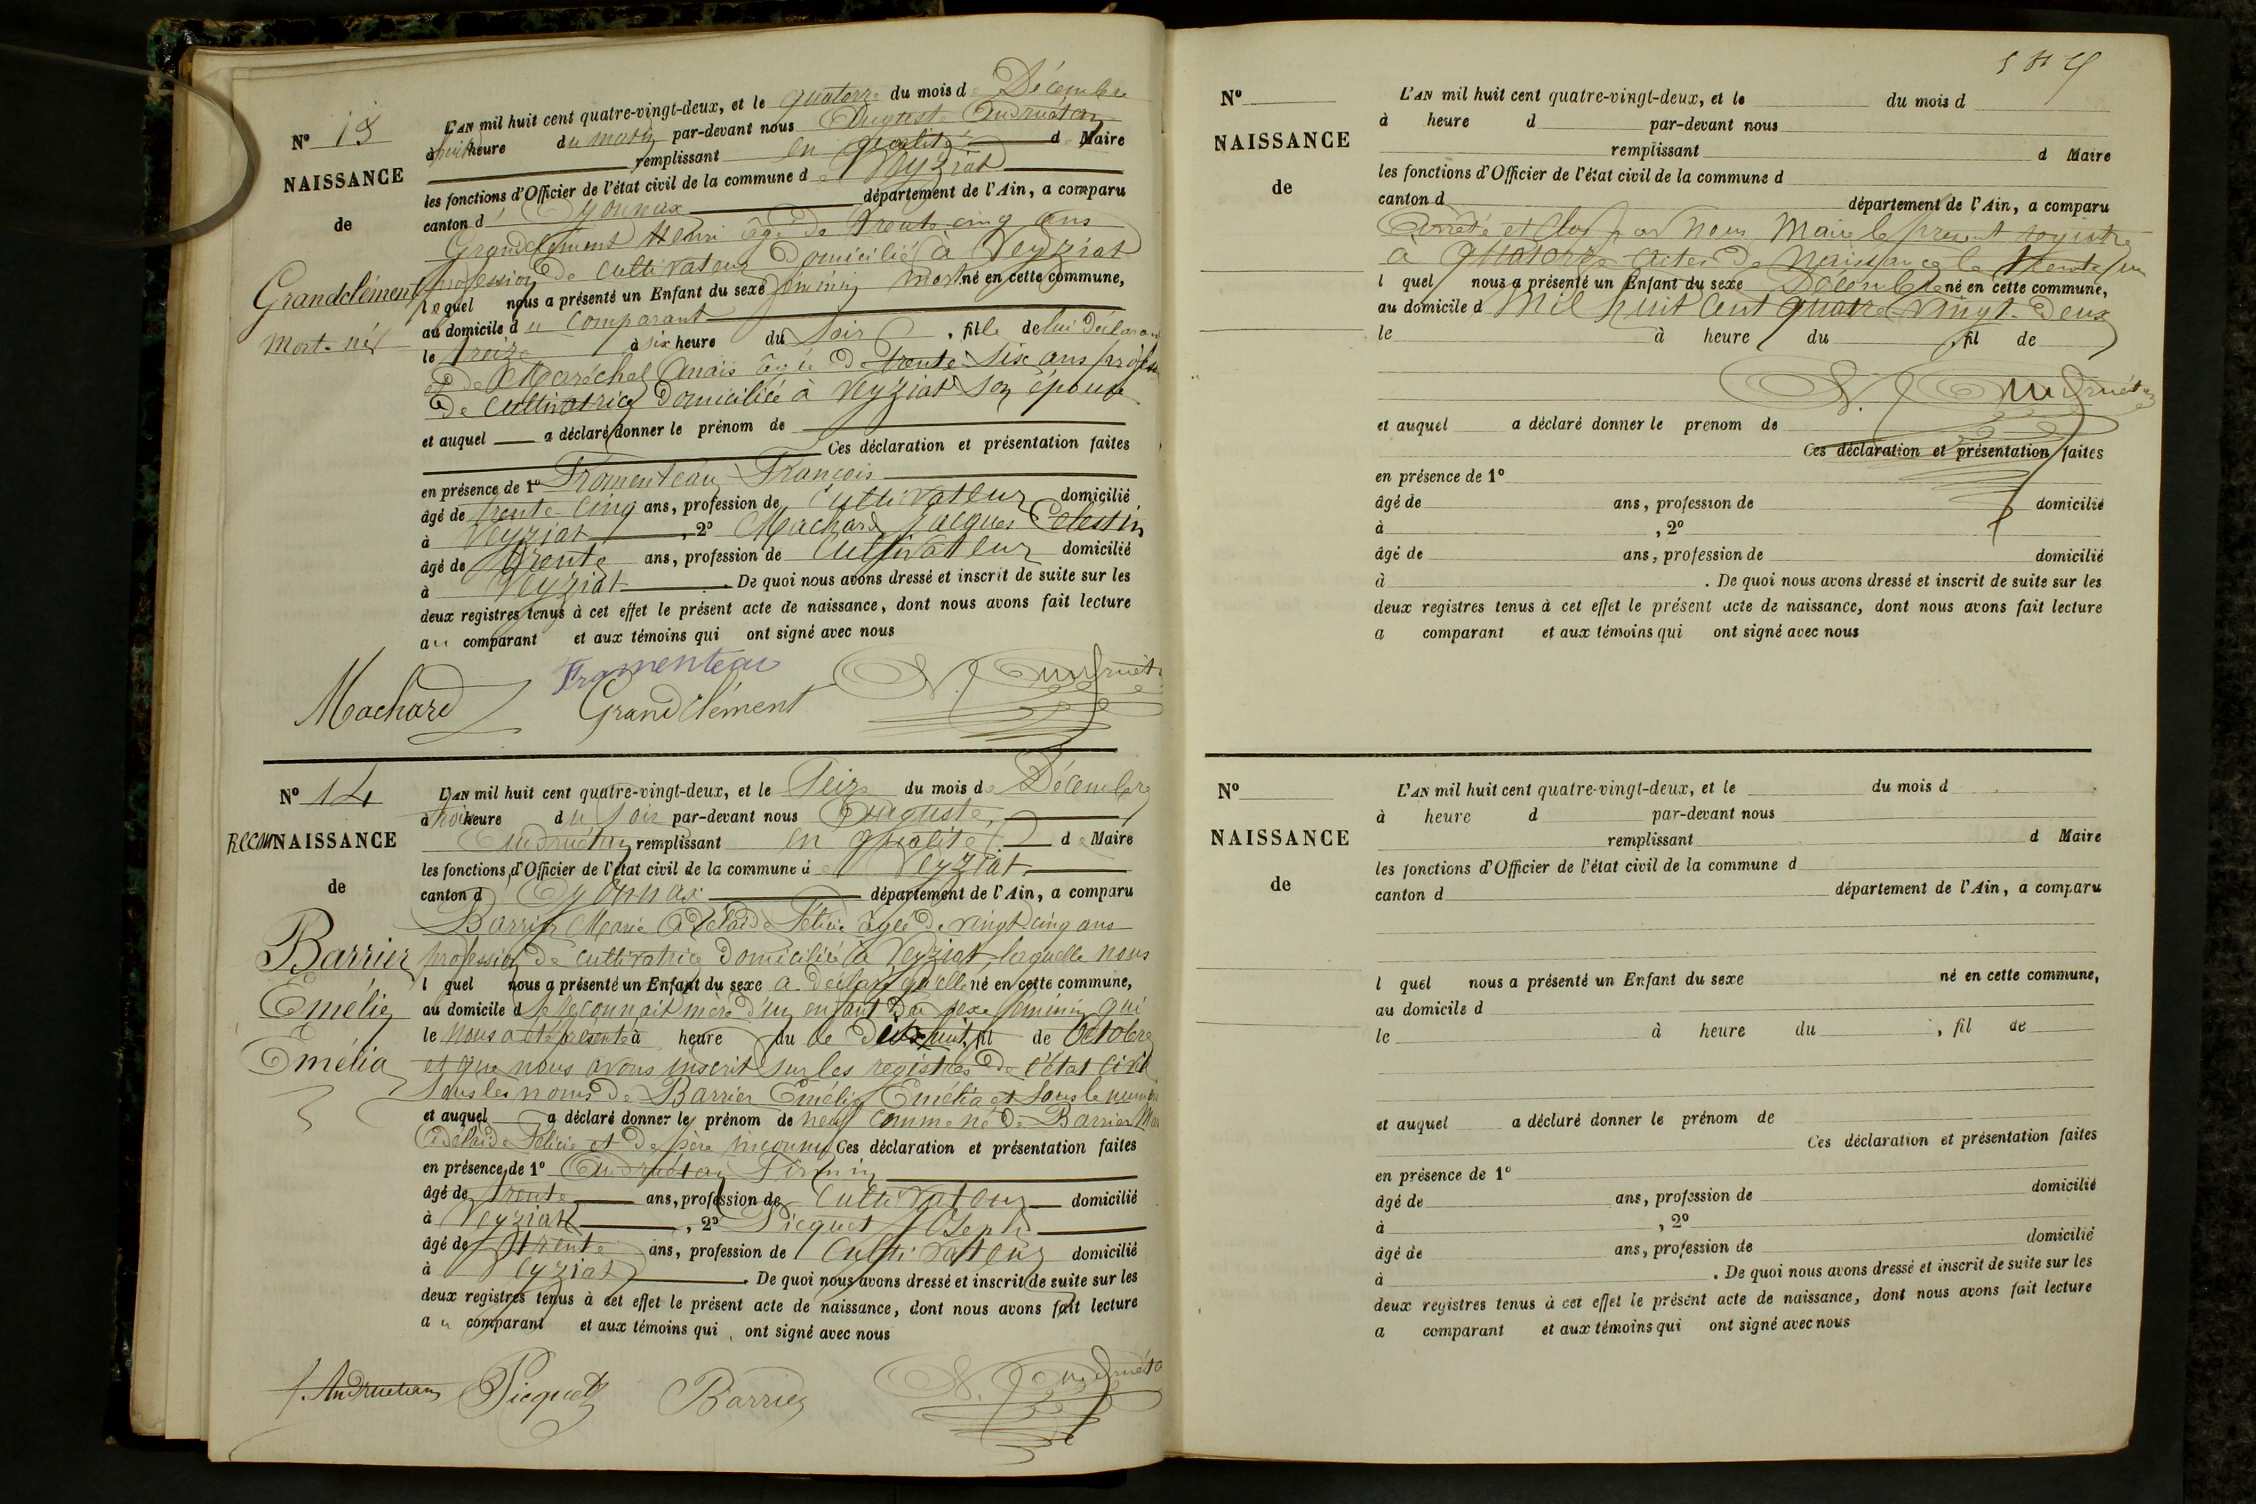 Nº 13
NAISSANCE
de
Grandclément
mort-né
L'AN mil huit cent quatre-vingt-deux, et le quatorze du mois de Décembre
à heure du matin par-devant nous Auguste Andruétan
remplissant en qualité de Maire
les fonctions d'Officier de l'état civil de la commune de Veyziat
canton d'Oyonnax département de l'Ain, a comparu
Grandclément Henri âgé de trente cinq ans
profession de cultivateur domicilié à Veyziat
lequel nous a présenté un Enfant du sexe féminin mort né en cette commune,
au domicile du comparant
le treize à six heure du soir, fille de lui déclarant
et de Maréchal Anaïs âgée de trente six ans profession
de cultivatrice domiciliée à Veyziat son épouse
et auquel a déclaré donner le prénom de
Ces déclaration et présentation faites
en présence de 1º Fromenteau François
âgé de trente cinq ans, profession de cultivateur domicilié
à Veyziat, 2º Machard Jacques Célestin
âgé de trente ans, profession de cultivateur domicilié
à Veyziat. De quoi nous avons dressé et inscrit de suite sur les
deux registres tenus à cet effet le présent acte de naissance, dont nous avons fait lecture
au comparant et aux témoins qui ont signé avec nous
Fromenteau
Machard Grandclément A. Andruétan
Nº 14
RECON NAISSANCE
de
Barrier
Emélie
Emélia
L'AN mil huit cent quatre-vingt-deux, et le Seize du mois de Décembre
à trois heure du soir par-devant nous Auguste
Andruétan remplissant en qualité de Maire
les fonctions d'Officier de l'état civil de la commune de Veyziat
canton d'Oyonnax département de l'Ain, a comparu
Barrier Marie Adélaïde Félicie âgée de vingt cinq ans
profession de cultivatrice domiciliée à Veyziat laquelle nous
l quel nous a présenté un Enfant du sexe a déclaré qu'elle né en cette commune,
au domicile d se reconnaît mère d'un enfant du sexe féminin qui
le nous a été présenté à heure du le dix huit, fil de Octobre
et que nous avons inscrit sur les registres de l'état civil
sous les noms de Barrier Emélie Emélia et sous le numéro
et auquel a déclaré donner le prénom de neuf comme né de Barrier Marie
Adélaïde Félicie et de père inconnu Ces déclaration et présentation faites
en présence de 1º Andruétan Firmin
âgé de trente ans, profession de cultivateur domicilié
à Veyziat, 2º Picquet Joseph
âgé de trente ans, profession de cultivateur domicilié
à Veyziat. De quoi nous avons dressé et inscrit de suite sur les
deux registres tenus à cet effet le présent acte de naissance, dont nous avons fait lecture
au comparant et aux témoins qui ont signé avec nous
f. Andruétan Picquet Barrier A. Andruétan
Nº
NAISSANCE
de
L'AN mil huit cent quatre-vingt-deux, et le du mois d
à heure d par-devant nous
remplissant d Maire
les fonctions d'Officier de l'état civil de la commune d
canton d département de l'Ain, a comparu
Arrêté et clos par nous Maire le présent registre
à quatorze actes de naissance le trente un
l quel nous a présenté un Enfant du sexe Décembre né en cette commune,
au domicile d mil huit cent quatre vingt-deux
le à heure du, fil de
A. Andruétan
et auquel a déclaré donner le prenom de
Ces déclaration et présentation faites
en présence de 1º
âgé de ans, profession de domicilié
à, 2º
âgé de ans, profession de domicilié
à. De quoi nous avons dressé et inscrit de suite sur les
deux registres tenus à cet effet le présent acte de naissance, dont nous avons fait lecture
a comparant et aux témoins qui ont signé avec nous
Nº
NAISSANCE
de
L'AN mil huit cent quatre-vingt-deux, et le du mois d
à heure d par-devant nous
remplissant d Maire
les fonctions d'Officier de l'état civil de la commune d
canton d département de l'Ain, a comparu
l quel nous a présenté un Enfant du sexe né en cette commune,
au domicile d
le à heure du, fil de
et auquel a déclaré donner le prénom de
Ces déclaration et présentation faites
en présence de 1º
âgé de ans, profession de domicilié
à, 2º
âgé de ans, profession de domicilié
à. De quoi nous avons dressé et inscrit de suite sur les
deux registres tenus à cet effet le présent acte de naissance, dont nous avons fait lecture
a comparant et aux témoins qui ont signé avec nous